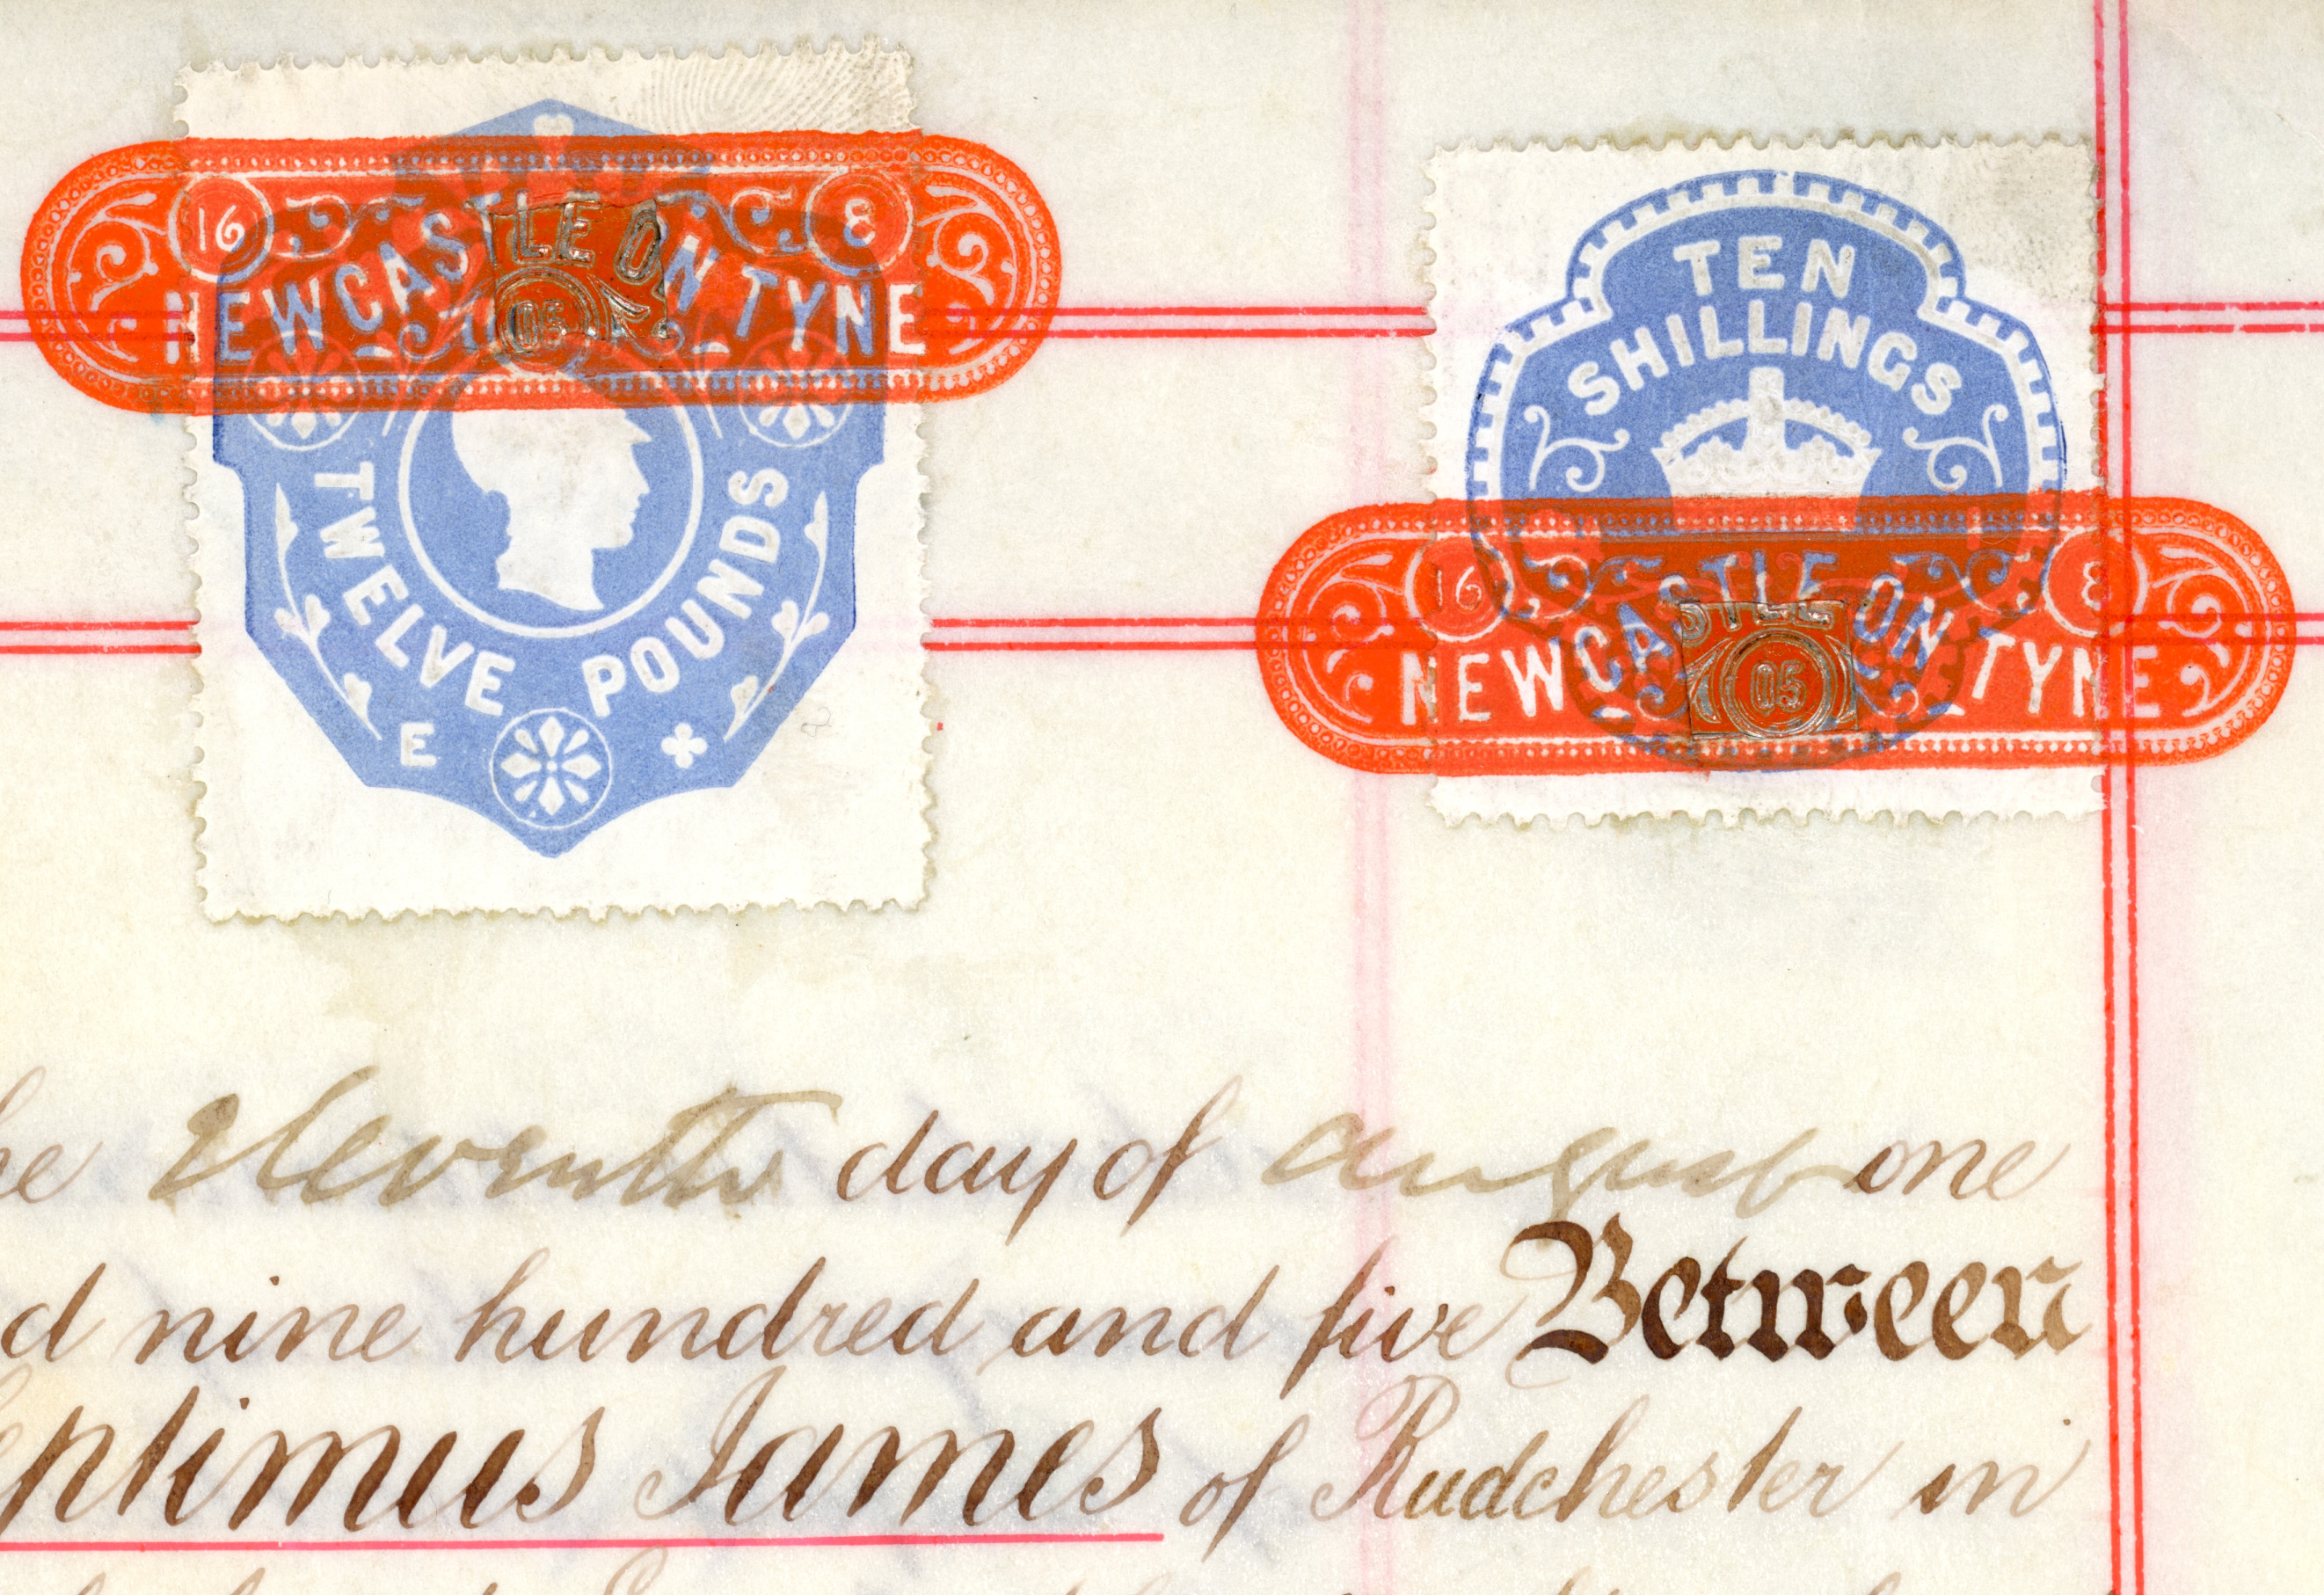 16 8
NEWCASTLE ON TYNE
05
TWELVE POUNDS
E
TEN
SHILLINGS
16 8
NEWCASTLE ON TYNE
05
he Eleventh day of August one
d nine hundred and five Between
eptimus James of Rudchester in